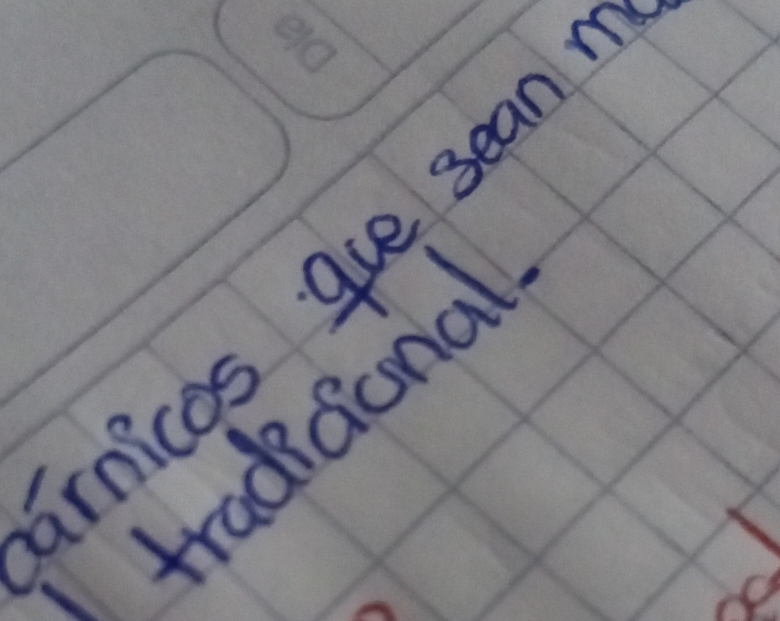 Dia
cárnicos que sean
tradicional.